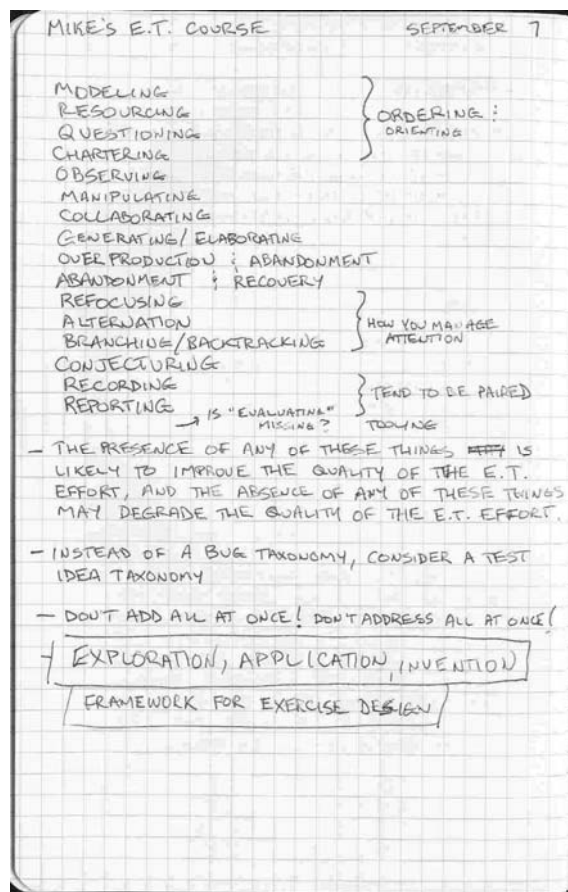 MIKE'S E.T. COURSE SEPTEMBER 7
MODELING
RESOURCING
QUESTIONING
CHARTERING
ORDERING &
ORIENTING
OBSERVING
MANIPULATING
COLLABORATING
GENERATING/ELABORATING
OVERPRODUCTION & ABANDONMENT
ABANDONMENT & RECOVERY
REFOCUSING
ALTERNATION
BRANCHING/BACKTRACKING
HOW YOU MANAGE
ATTENTION
CONJECTURING
RECORDING
REPORTING
TEND TO BE PAIRED
→ IS "EVALUATING"
MISSING?
TOOLING
- THE PRESENCE OF ANY OF THESE THINGS IS
LIKELY TO IMPROVE THE QUALITY OF THE E.T.
EFFORT, AND THE ABSENCE OF ANY OF THESE THINGS
MAY DEGRADE THE QUALITY OF THE E.T. EFFORT.
- INSTEAD OF A BUG TAXONOMY, CONSIDER A TEST
IDEA TAXONOMY
- DON'T ADD ALL AT ONCE! DON'T ADDRESS ALL AT ONCE!
- EXPLORATION, APPLICATION, INVENTION
FRAMEWORK FOR EXERCISE DESIGN